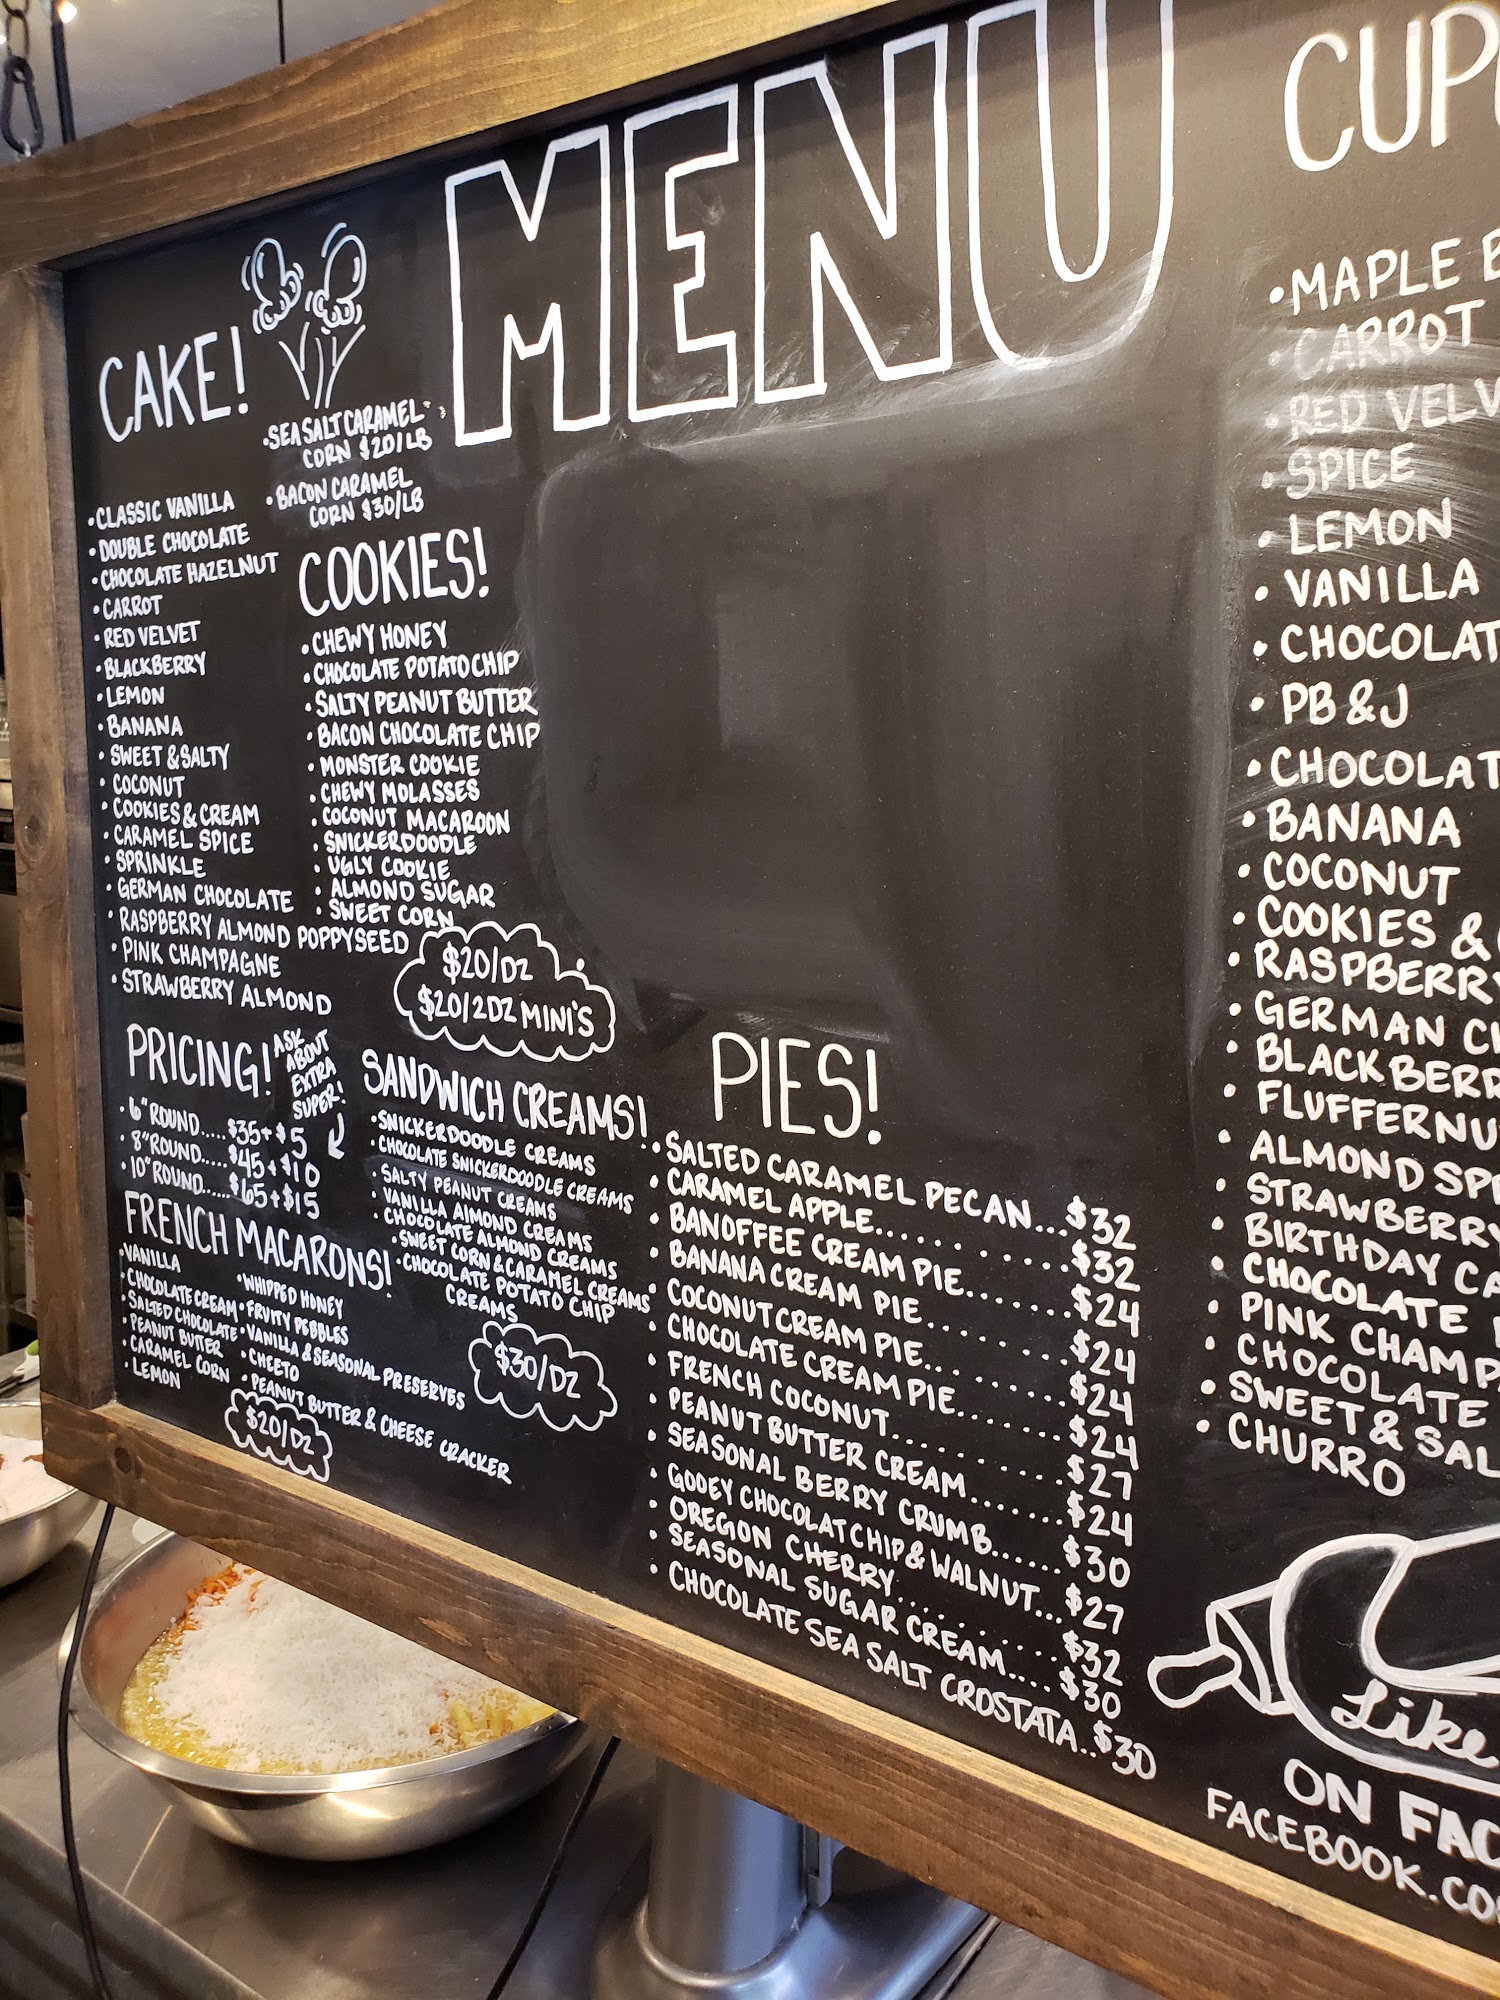 MENU
CAKE!
•SEA SALT CARAMEL
CORN $20/LB
•BACON CARAMEL
CORN $30/LB
•CLASSIC VANILLA
•DOUBLE CHOCOLATE
•CHOCOLATE HAZELNUT
•CARROT
•RED VELVET
•BLACKBERRY
•LEMON
•BANANA
•SWEET & SALTY
•COCONUT
•COOKIES & CREAM
•CARAMEL SPICE
•SPRINKLE
•GERMAN CHOCOLATE
•RASPBERRY ALMOND POPPYSEED
•PINK CHAMPAGNE
•STRAWBERRY ALMOND
COOKIES!
•CHEWY HONEY
•CHOCOLATE POTATO CHIP
•SALTY PEANUT BUTTER
•BACON CHOCOLATE CHIP
•MONSTER COOKIE
•CHEWY MOLASSES
•COCONUT MACAROON
•SNICKERDOODLE
•UGLY COOKIE
•ALMOND SUGAR
•SWEET CORN
$20/DZ
$20/2DZ MINI'S
PRICING!
ASK
ABOUT
EXTRA
SUPER!
•6"ROUND.....$35+$5
•8"ROUND.....$45+$10
•10"ROUND......$65+$15
FRENCH MACARONS!
•VANILLA
•CHOCOLATE CREAM
•SALTED CHOCOLATE
•PEANUT BUTTER
•CARAMEL CORN
•LEMON
•WHIPPED HONEY
•FRUITY PEBBLES
•VANILLA & SEASONAL PRESERVES
•CHEETO
•PEANUT BUTTER & CHEESE CRACKER
$20/DZ
SANDWICH CREAMS!
•SNICKERDOODLE CREAMS
•CHOCOLATE SNICKERDOODLE CREAMS
•SALTY PEANUT CREAMS
•VANILLA ALMOND CREAMS
•CHOCOLATE ALMOND CREAMS
•SWEET CORN & CARAMEL CREAMS
•CHOCOLATE POTATO CHIP
CREAMS
$30/DZ
PIES!
•SALTED CARAMEL PECAN...$32
•CARAMEL APPLE..........$32
•BANOFFEE CREAM PIE.......$24
•BANANA CREAM PIE.........$24
•COCONUT CREAM PIE.........$24
•CHOCOLATE CREAM PIE.......$24
•FRENCH COCONUT..........$27
•PEANUT BUTTER CREAM.......$24
•SEASONAL BERRY CRUMB......$30
•GOOEY CHOCOLATCHIP & WALNUT...$27
•OREGON CHERRY..........$32
•SEASONAL SUGAR CREAM.....$30
•CHOCOLATE SEA SALT CROSTATA..$30
CUP
•MAPLE B
•CARROT
•RED VELV
•SPICE
•LEMON
•VANILLA
•CHOCOLAT
•PB & J
•CHOCOLAT
•BANANA
•COCONUT
•COOKIES &
•RASPBERRY
•GERMAN CH
•BLACKBERR
•FLUFFERNU
•ALMOND SP
•STRAWBERRY
•BIRTHDAY CA
•CHOCOLATE
•PINK CHAMP
•CHOCOLATE
•SWEET & SAL
•CHURRO
Like
ON FAC
FACEBOOK.CO